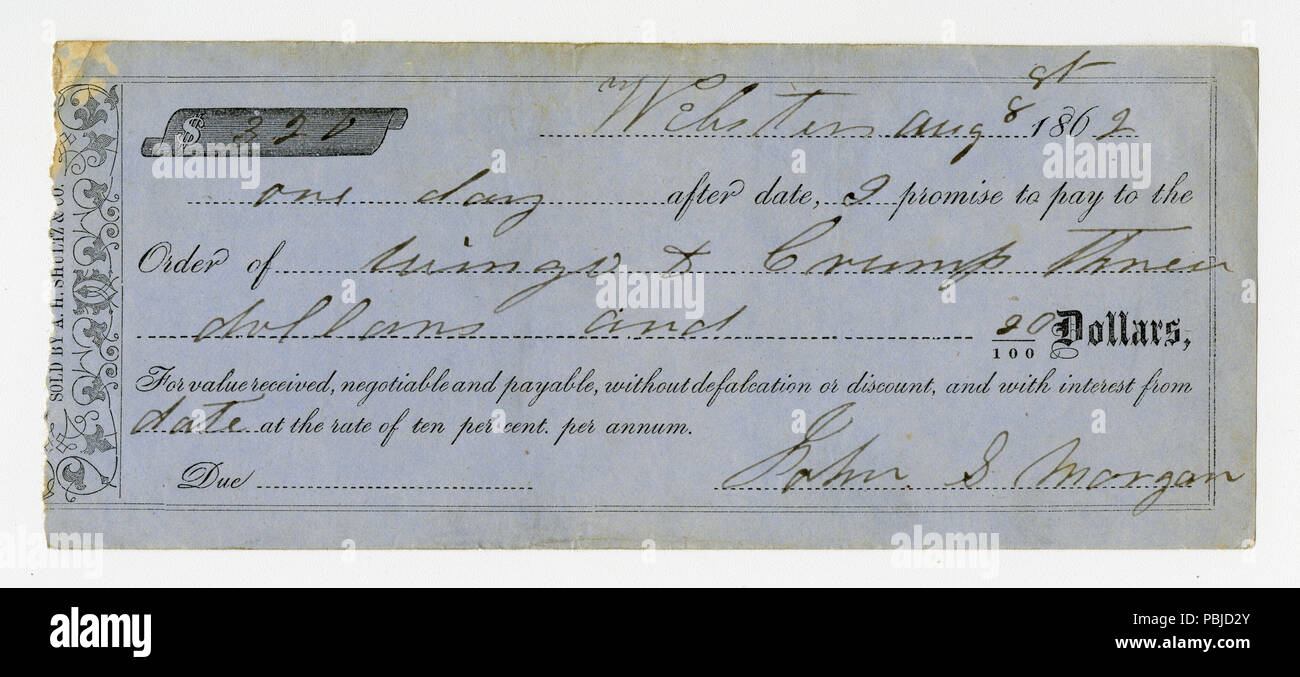 $ 320 Webster aug 8st 1862
one day after date, I promise to pay to the
Order of wingo & Crump three
dollars and 20/100 Dollars,
For value received, negotiable and payable, without defalcation or discount, and with interest from
date at the rate of ten per cent. per annum.
Due John S Morgan
SOLD BY A. H. SHULTZ & CO.
alamy
alamy stock photo
PBJD2Y
www.alamy.com